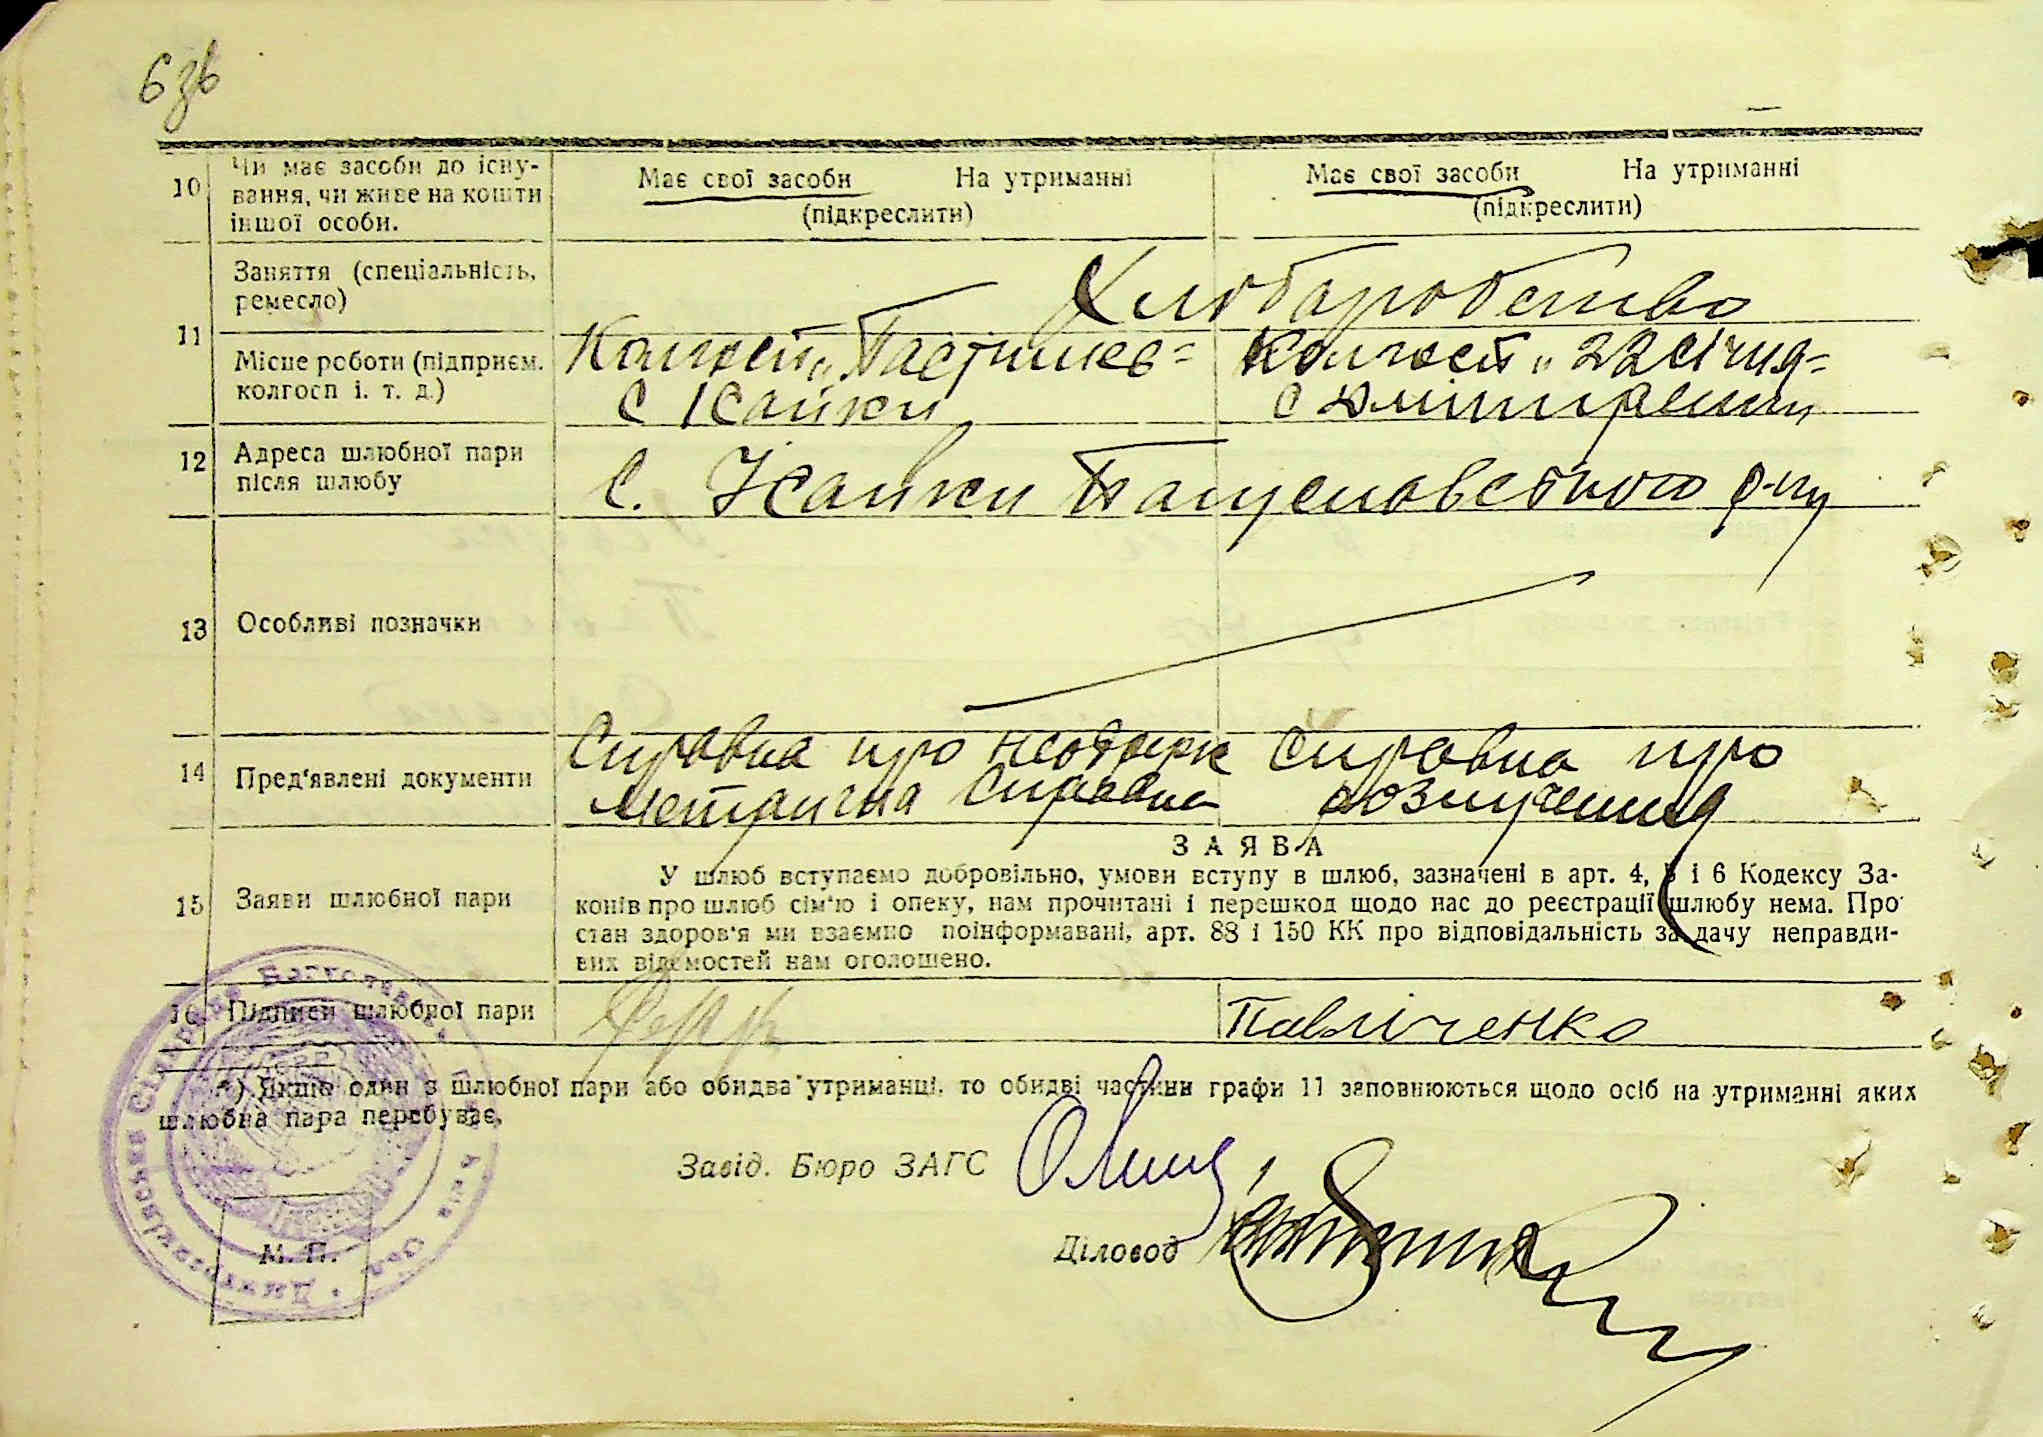 6 зв
10 Чи має засоби до існу-
вання, чи живе на кошти
іншої особи.
Має свої засоби На утриманні
(підкреслити)
Має свої засоби На утриманні
(підкреслити)
11 Заняття (спеціальність,
ремесло)
Хліборобство
Місце роботи (підприєм.
колгосп і. т. д.)
Колгосп
с
Колгосп „22 січня"
с Дмітренки
12 Адреса шлюбної пари
після шлюбу
С. р-ну
13 Особливі позначки
14 Пред'явлені документи
Справка про
метрична справка
Справка про
розлучення
ЗАЯВА
15 Заяви шлюбної пари
У шлюб вступаємо добровільно, умови вступу в шлюб, зазначені в арт. 4, 5 і 6 Кодексу За-
конів про шлюб сім'ю і опеку, нам прочитані і перешкод щодо нас до реєстрації шлюбу нема. Про
стан здоров'я ми взаємно поінформавані, арт. 88 і 150 КК про відповідальність за дачу неправди-
вих відомостей нам оголошено.
16 Підписи шлюбної пари
Павліченко
*) Якщо один з шлюбної пари або обидва утриманці, то обидві частини графи 11 заповнюються щодо осіб на утриманні яких
шлюбна пара перебуває.
Завід. Бюро ЗАГС
Діловод
М. П.